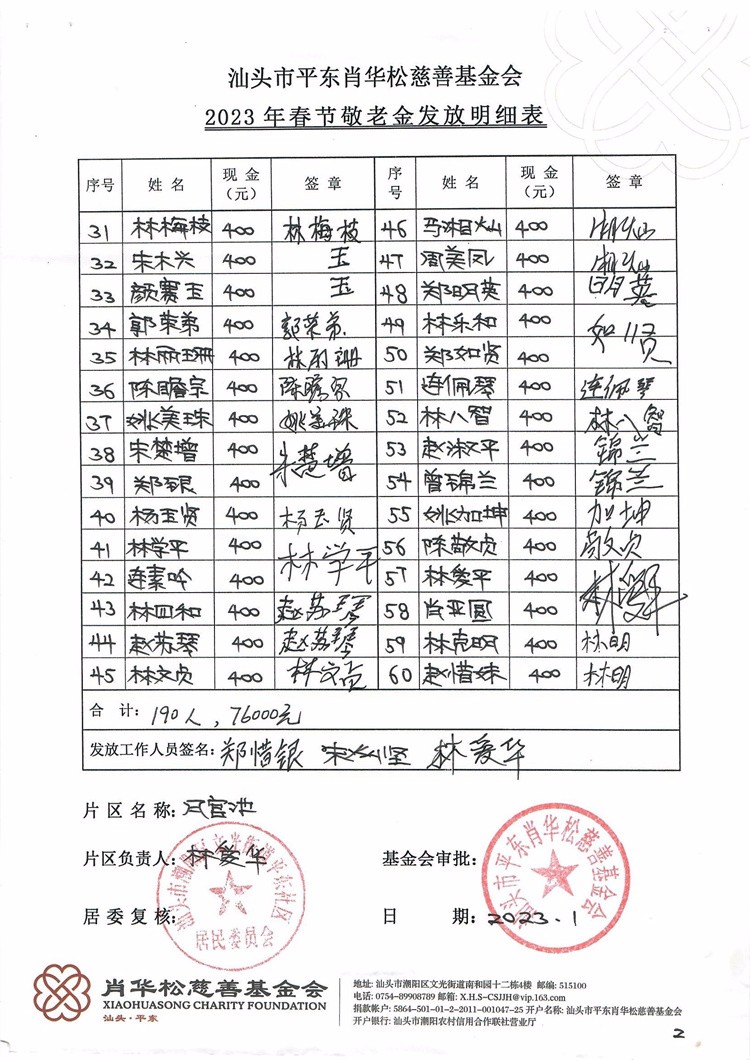 汕头市平东肖华松慈善基金会
2023年春节敬老金发放明细表
序号 姓名 现金（元） 签章 序号 姓名 现金（元） 签章
31 林梅枝 400 林梅枝 46 马湘灿 400
32 宋木兴 400 玉 47 周美凤 400
33 颜赛玉 400 玉 48 郑明英 400 明英
34 郭荣弟 400 郭荣弟 49 林乐和 400
35 林丽珊 400 林丽珊 50 郑如贤 400 如贤
36 陈瞻宗 400 陈瞻宗 51 连佩琴 400 连佩琴
37 姚美珠 400 姚美珠 52 林八智 400 林八智
38 宋楚增 400 53 赵汉平 400 锦兰
39 郑银 400 54 曾锦兰 400 锦兰
40 杨玉贤 400 杨玉贤 55 姚加坤 400 加坤
41 林学平 400 林学平 56 陈敬贞 400 敬贞
42 连素吟 400 57 林爱平 400
43 林四和 400 赵苏琴 58 肖亚圆 400
44 赵苏琴 400 赵苏琴 59 林克明 400 林明
45 林文贞 400 林文贞 60 赵惜妹 400 林明
合计：190人，76000元
发放工作人员签名：郑惜银 林爱华
片区名称：
片区负责人：林爱华 基金会审批：
居委复核： 日期：2023.1
汕头市潮阳区文光街道平东社区
居民委员会
汕头市平东肖华松慈善基金会
肖华松慈善基金会
XIAOHUASONG CHARITY FOUNDATION
汕头·平东
地址：汕头市潮阳区文光街道南和园十二栋4楼 邮编：515100
电话：0754-89908789 邮箱：X.H.S-CSJJH@vip.163.com
捐款帐户：5864-501-01-2-2011-001047-25 开户名称：汕头市平东肖华松慈善基金会
开户银行：汕头市潮阳农村信用合作联社营业厅
2